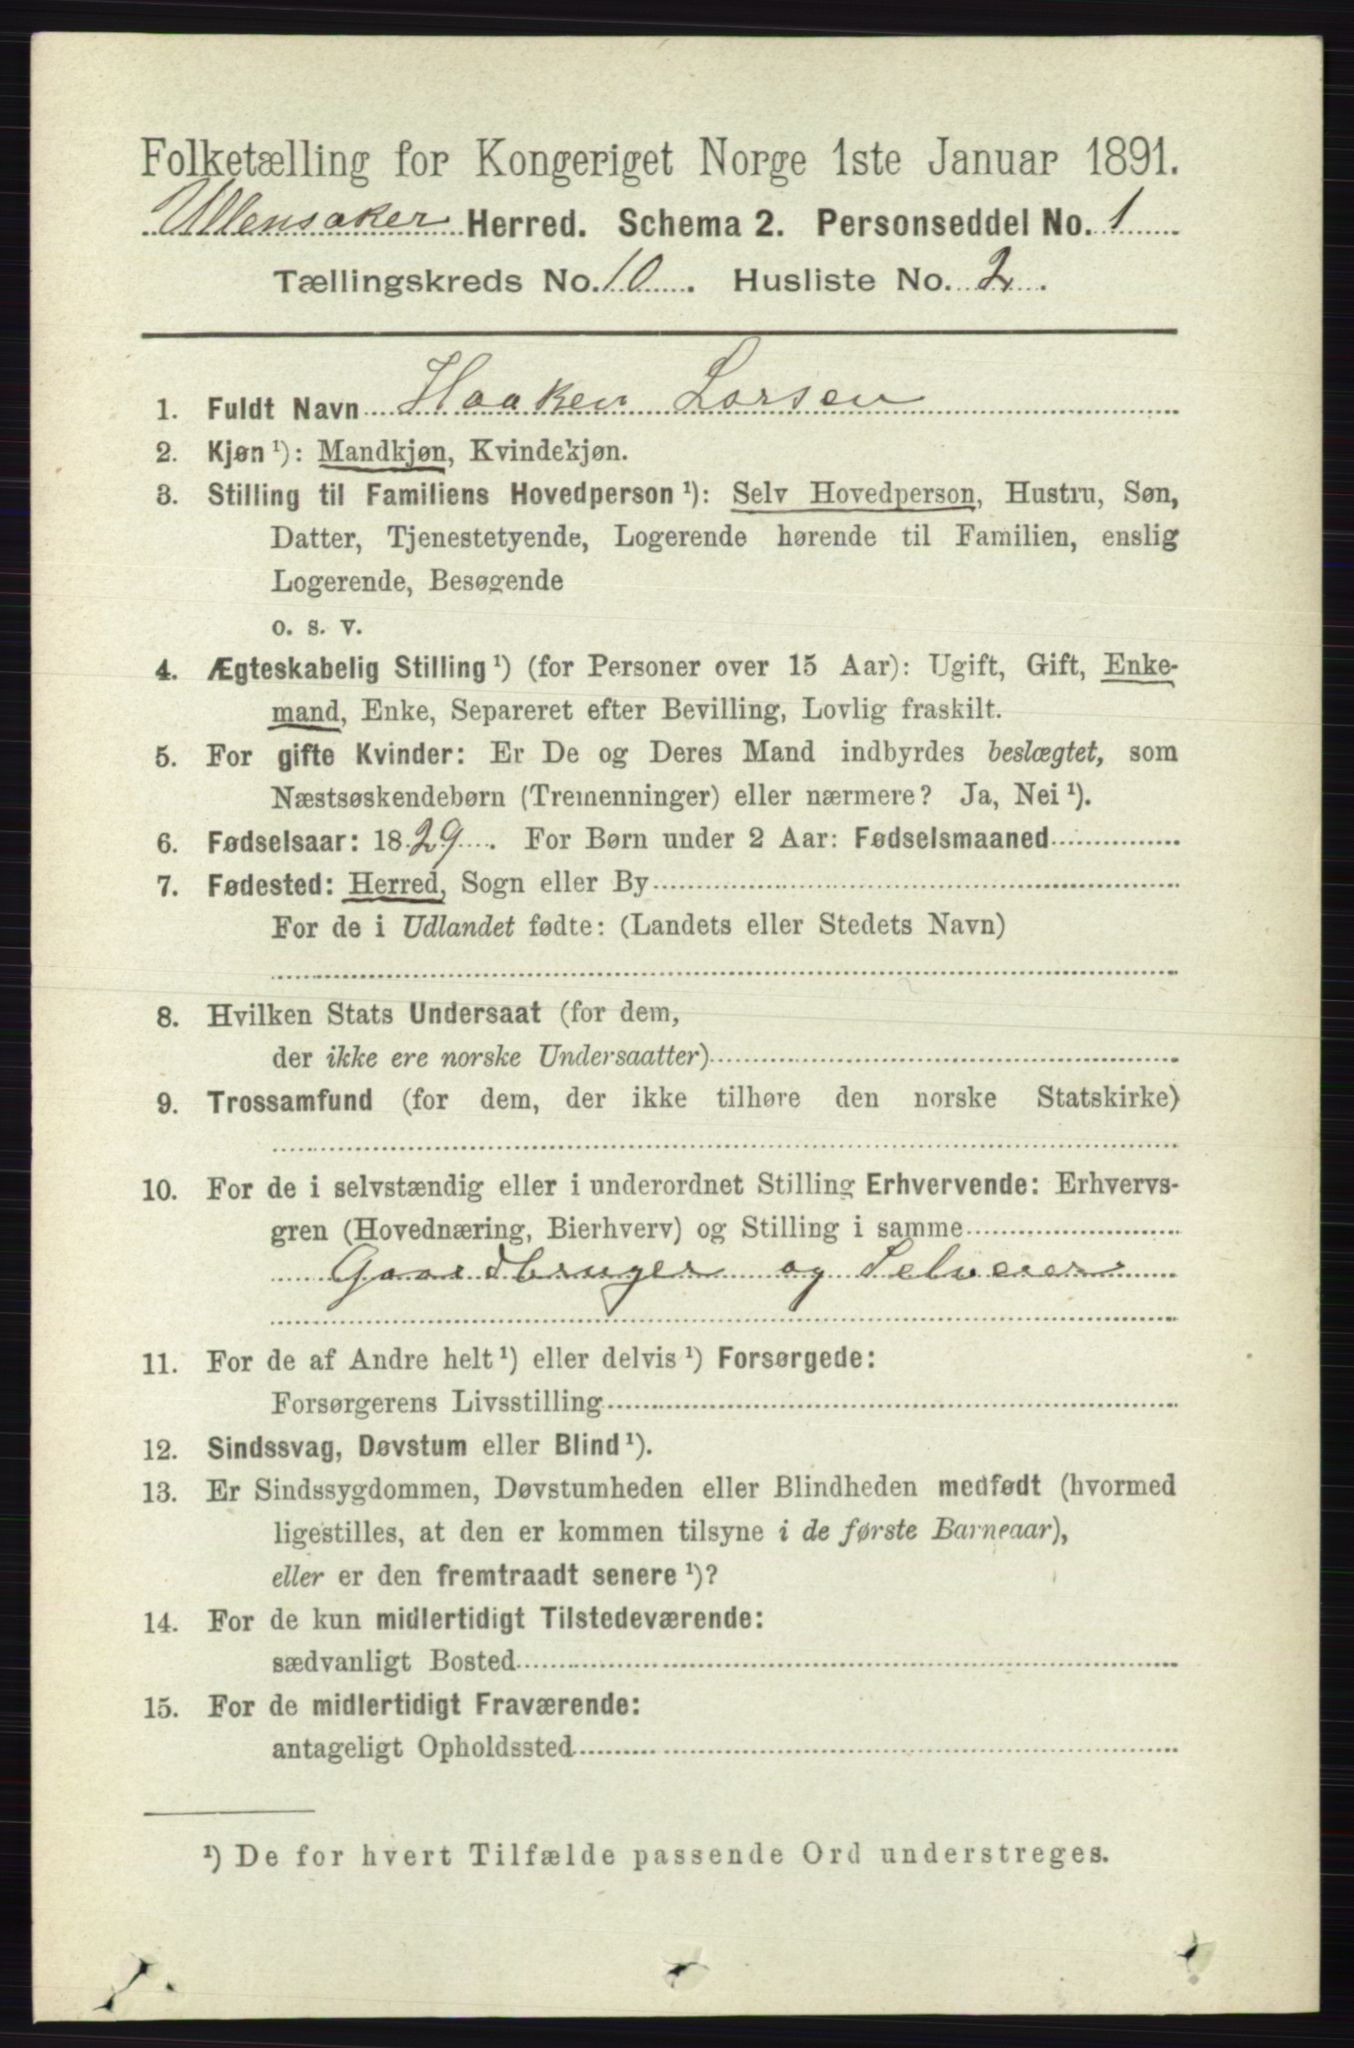 Folketælling for Kongeriget Norge 1ste Januar 1891.
Ullensaker Herred. Schema 2. Personseddel No. 1
Tællingskreds No. 10. Husliste No. 2.
1. Fuldt Navn Haaken Larsen
2. Kjøn ¹): Mandkjøn, Kvindekjøn.
3. Stilling til Familiens Hovedperson ¹): Selv Hovedperson, Hustru, Søn,
Datter, Tjenestetyende, Logerende hørende til Familien, enslig
Logerende, Besøgende
o. s. v.
4. Ægteskabelig Stilling ¹) (for Personer over 15 Aar): Ugift, Gift, Enke-
mand, Enke, Separeret efter Bevilling, Lovlig fraskilt.
5. For gifte Kvinder: Er De og Deres Mand indbyrdes beslægtet, som
Næstsøskendebørn (Tremenninger) eller nærmere? Ja, Nei ¹).
6. Fødselsaar: 1829. For Børn under 2 Aar: Fødselsmaaned
7. Fødested: Herred, Sogn eller By
For de i Udlandet fødte: (Landets eller Stedets Navn)
8. Hvilken Stats Undersaat (for dem,
der ikke ere norske Undersaatter)
9. Trossamfund (for dem, der ikke tilhøre den norske Statskirke)
10. For de i selvstændig eller i underordnet Stilling Erhvervende: Erhvervs-
gren (Hovednæring, Bierhverv) og Stilling i samme
Gaardbruger og Selveier
11. For de af Andre helt ¹) eller delvis ¹) Forsørgede:
Forsørgerens Livsstilling
12. Sindssvag, Døvstum eller Blind ¹).
13. Er Sindssygdommen, Døvstumheden eller Blindheden medfødt (hvormed
ligestilles, at den er kommen tilsyne i de første Barneaar),
eller er den fremtraadt senere ¹)?
14. For de kun midlertidigt Tilstedeværende:
sædvanligt Bosted
15. For de midlertidigt Fraværende:
antageligt Opholdssted
¹) De for hvert Tilfælde passende Ord understreges.